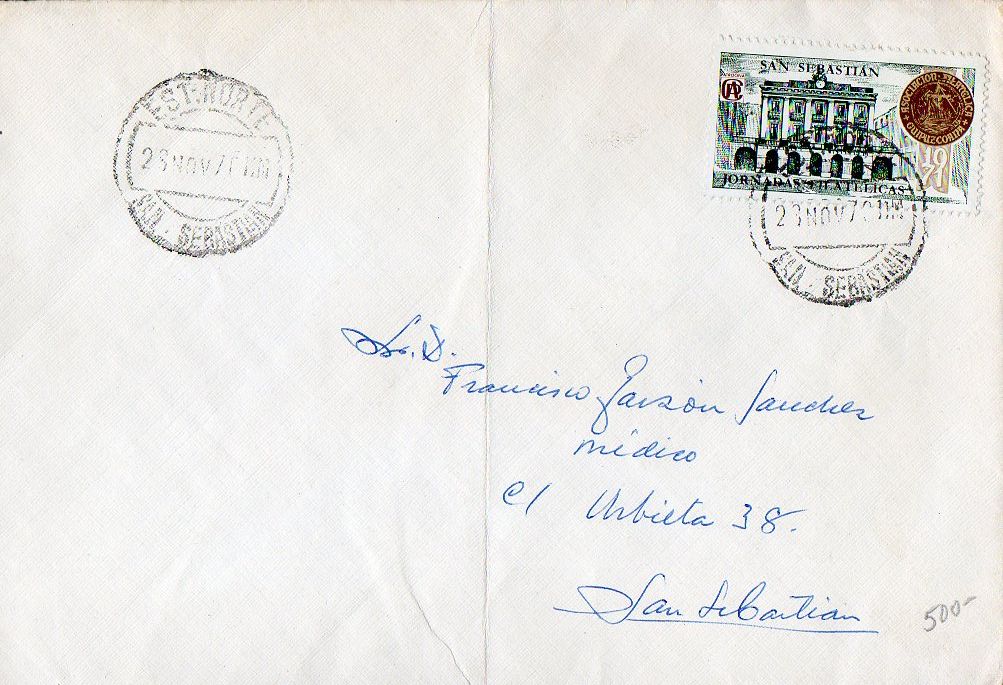 EST. NORTE
23 NOV 70 11M
SAN - SEBASTIAN
SAN SEBASTIÁN
ASOCIACION FILATELICA
GUIPUZCOANA
JORNADAS FILATELICAS
23 NOV 70 11M
SAN - SEBASTIAN
Sr. D.
Francisco Garzón Sanchez
médico
c/ Urbieta 38.
San Sebastian
500-